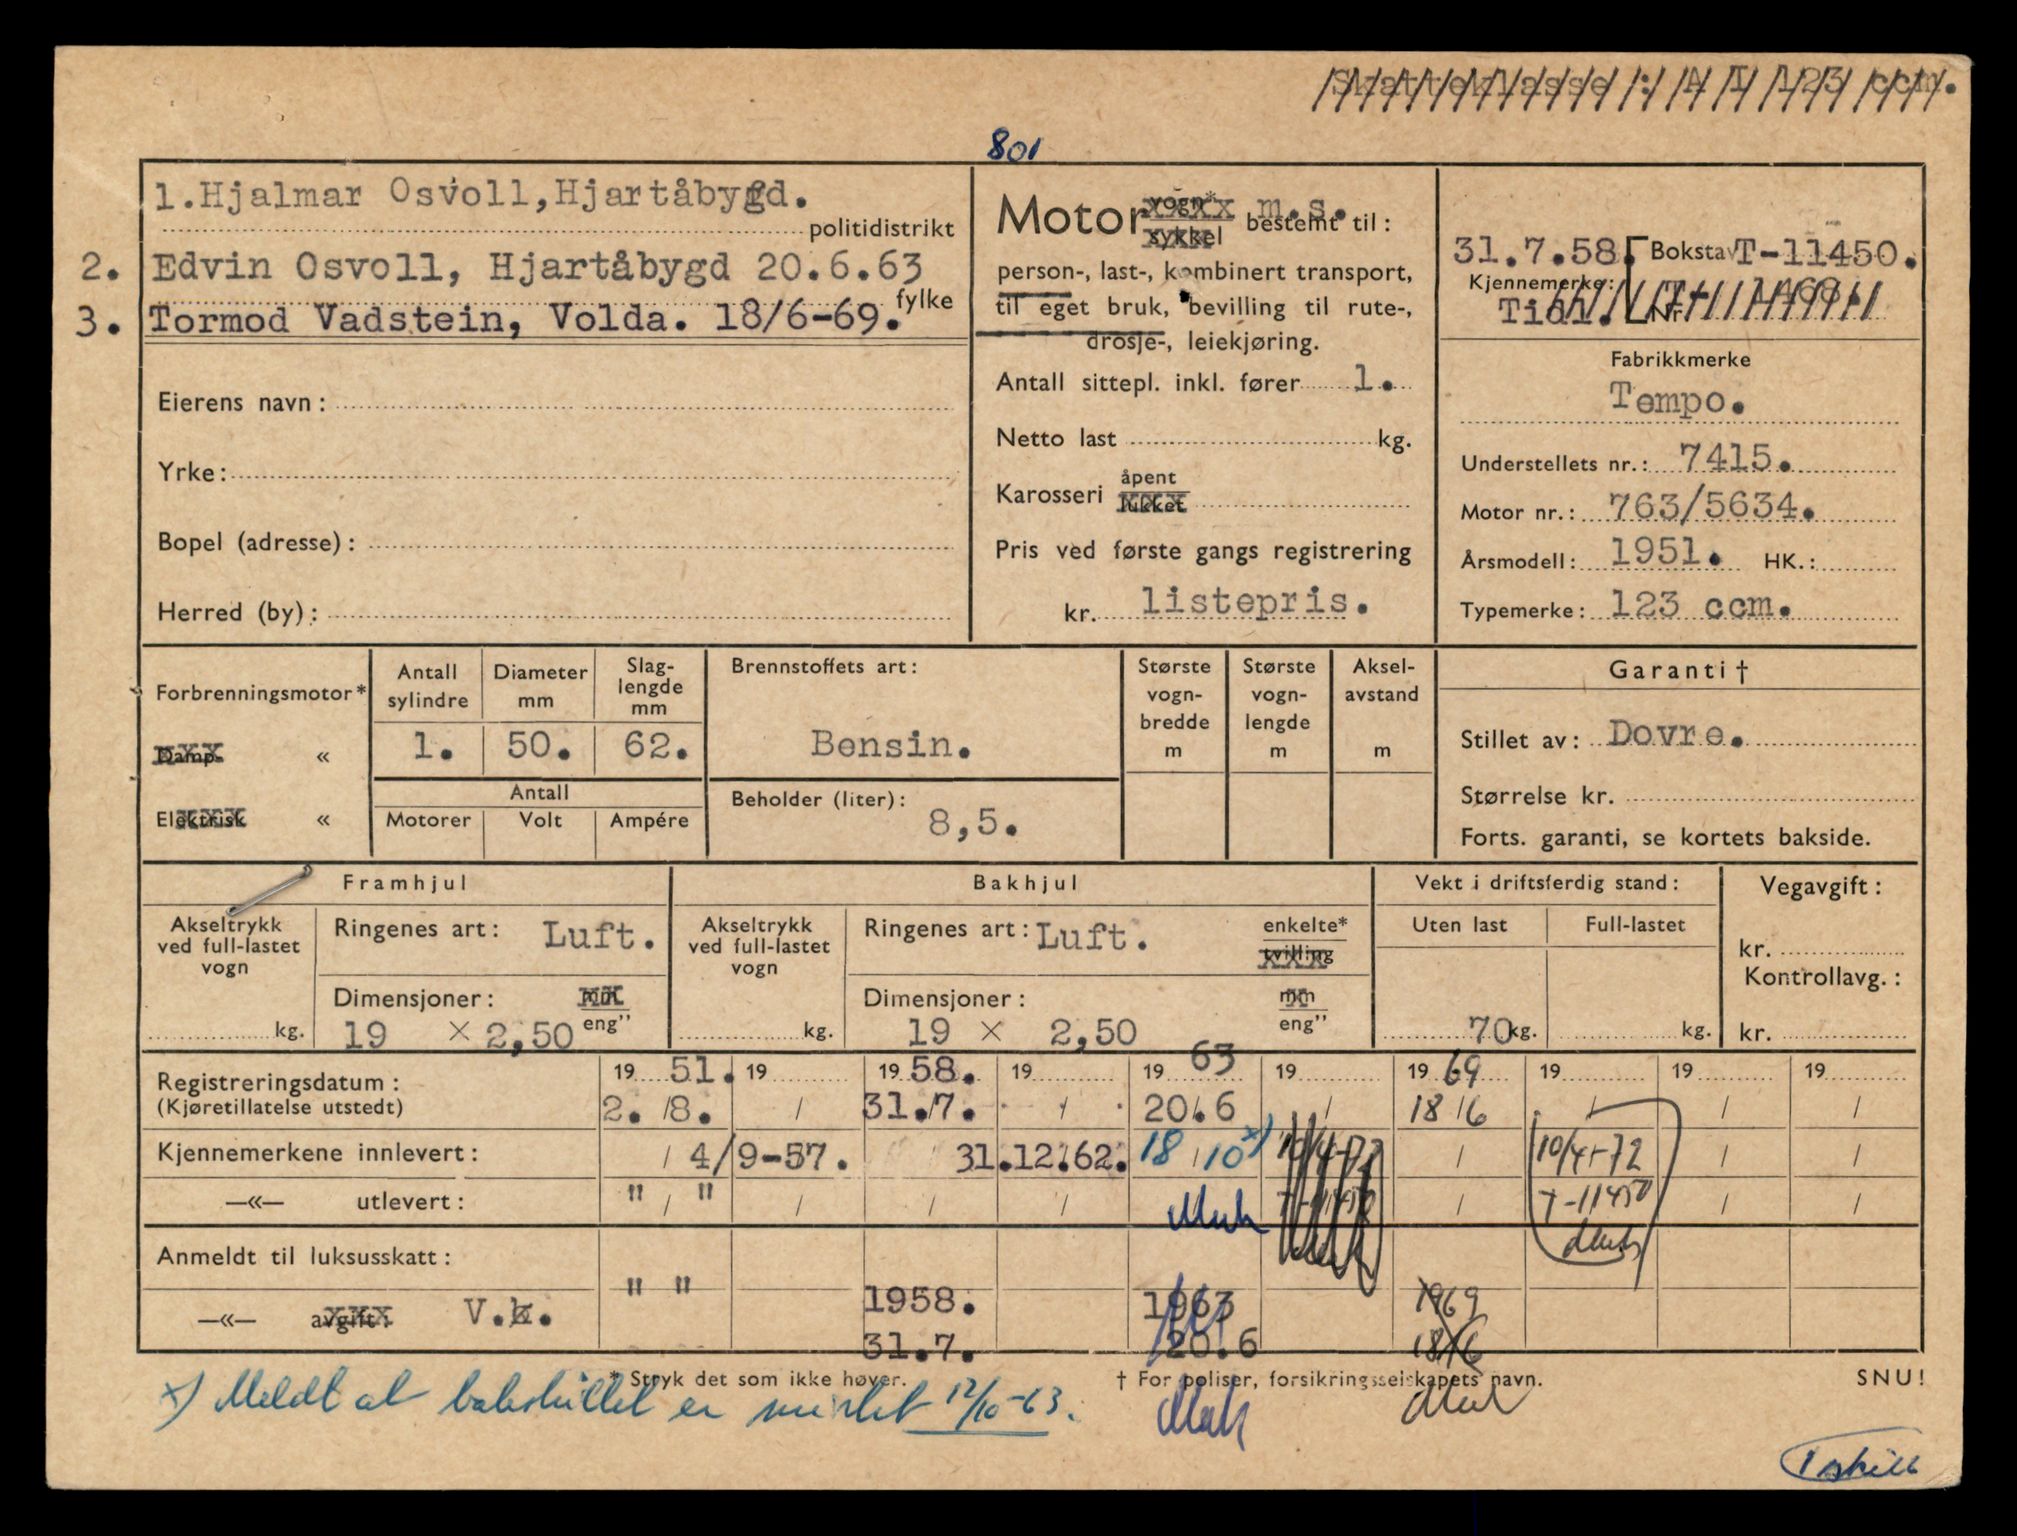 Skatteklasse : A I 123 ccm.
801
1. Hjalmar Osvoll, Hjartåbygd.
politidistrikt
2. Edvin Osvoll, Hjartåbygd 20.6.63
fylke
3. Tormod Vadstein, Volda. 18/6-69.
Eierens navn:
Yrke:
Bopel (adresse):
Herred (by):
Motor vogn* sykkel m.s. bestemt til:
person-, last-, kombinert transport,
til eget bruk, bevilling til rute-,
drosje-, leiekjøring.
Antall sittepl. inkl. fører 1.
Netto last kg.
Karosseri åpent lukket
Pris ved første gangs registrering
kr. listepris.
31.7.58. Bokstav T-11450.
Kjennemerke:
Tidl. Nr. T-
Fabrikkmerke
Tempo.
Understellets nr.: 7415.
Motor nr.: 763/5634.
Årsmodell: 1951. HK.:
Typemerke: 123 ccm.
Forbrenningsmotor*
Damp- «
Elektrisk «
Antall sylindre 1.
Diameter mm 50.
Slag-lengde mm 62.
Antall
Motorer Volt Ampére
Brennstoffets art:
Bensin.
Beholder (liter):
8,5.
Største vogn-bredde m
Største vogn-lengde m
Aksel-avstand m
Garanti †
Stillet av: Dovre.
Størrelse kr.
Forts. garanti, se kortets bakside.
Framhjul
Akseltrykk ved full-lastet vogn
kg.
Ringenes art: Luft.
Dimensjoner: mm
19 × 2,50 eng"
Bakhjul
Akseltrykk ved full-lastet vogn
kg.
Ringenes art: Luft. enkelte* tvilling
Dimensjoner: mm
19 × 2,50 eng"
Vekt i driftsferdig stand:
Uten last Full-lastet
70 kg. kg.
Vegavgift:
kr.
Kontrollavg.:
kr.
Registreringsdatum: 19 51. 19 19 58. 19 19 63 19 19 69 19 19 19
(Kjøretillatelse utstedt) 2. /8. / 31./7. / 20/.6 / 18/6 / / /
Kjennemerkene innlevert: / 4/9-57. / 31.12.62. 18/10 x) 10/4-72 / 10/4-72 / /
—«— utlevert: " / " / / / T-11450 / T-11450 / /
Anmeldt til luksusskatt:
—«— avgift: V.k. " " 1958. 1963 1969
31.7. 20.6 18/6
* Stryk det som ikke høver.
† For poliser, forsikringsselskapets navn.
SNU!
x) Meldt at bakskiltet er mistet 12/10-63.
1 skilt